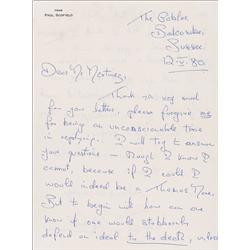 FROM
PAUL SCOFIELD
The Gables
Balcombe,
Sussex
12.V.80.
Dear Mr Martinez,
Thank you very much
for your letter, please forgive me
for being an unconscionable time
in replying. I will try to answer
your questions – though I know I
cannot, because if I could I
would indeed be a Thomas More.
But to begin with how can one
know if one would stubbornly
defend an ideal to the death, unless